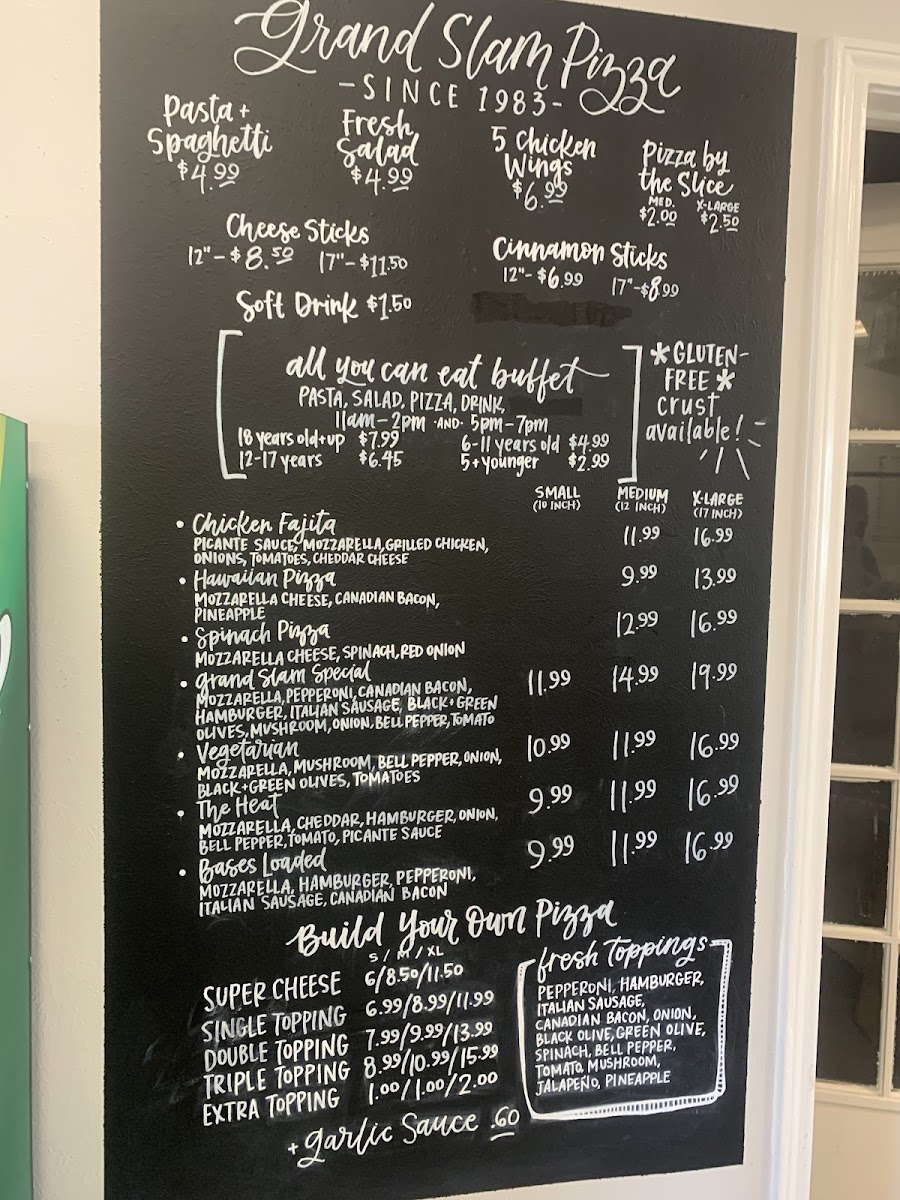 Grand Slam Pizza
-SINCE 1983-
Pasta + Spaghetti
$4.99
Fresh Salad
$4.99
5 Chicken Wings
$6.99
Pizza by the Slice
MED. X-LARGE
$2.00 $2.50
Cheese Sticks
12"-$8.50 17"-$11.50
Cinnamon Sticks
12"-$6.99 17"-$8.99
Soft Drink $1.50
all you can eat buffet
PASTA, SALAD, PIZZA, DRINK,
11am-2pm ·AND· 5pm-7pm
18 years old+up $7.99 6-11 years old $4.99
12-17 years $6.45 5+younger $2.99
*GLUTEN-
FREE*
crust
available!
SMALL MEDIUM X-LARGE
(10 INCH) (12 INCH) (17 INCH)
• Chicken Fajita 11.99 16.99
PICANTE SAUCE, MOZZARELLA, GRILLED CHICKEN,
ONIONS, TOMATOES, CHEDDAR CHEESE
• Hawaiian Pizza 9.99 13.99
MOZZARELLA CHEESE, CANADIAN BACON,
PINEAPPLE
• Spinach Pizza 12.99 16.99
MOZZARELLA CHEESE, SPINACH, RED ONION
• Grand Slam Special 11.99 14.99 19.99
MOZZARELLA, PEPPERONI, CANADIAN BACON,
HAMBURGER, ITALIAN SAUSAGE, BLACK+GREEN
OLIVES, MUSHROOM, ONION, BELL PEPPER, TOMATO
• Vegetarian 10.99 11.99 16.99
MOZZARELLA, MUSHROOM, BELL PEPPER, ONION,
BLACK+GREEN OLIVES, TOMATOES
• The Heat 9.99 11.99 16.99
MOZZARELLA, CHEDDAR, HAMBURGER, ONION,
BELL PEPPER, TOMATO, PICANTE SAUCE
• Bases Loaded 9.99 11.99 16.99
MOZZARELLA, HAMBURGER, PEPPERONI,
ITALIAN SAUSAGE, CANADIAN BACON
Build Your Own Pizza
S / M / XL
SUPER CHEESE 6/8.50/11.50
SINGLE TOPPING 6.99/8.99/11.99
DOUBLE TOPPING 7.99/9.99/13.99
TRIPLE TOPPING 8.99/10.99/15.99
EXTRA TOPPING 1.00/1.00/2.00
+ garlic Sauce .60
fresh Toppings
PEPPERONI, HAMBURGER,
ITALIAN SAUSAGE,
CANADIAN BACON, ONION,
BLACK OLIVE, GREEN OLIVE,
SPINACH, BELL PEPPER,
TOMATO, MUSHROOM,
JALAPEÑO, PINEAPPLE